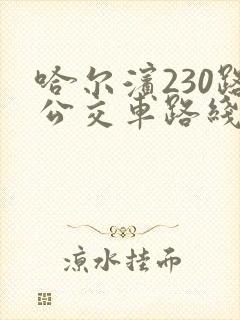 哈尔濱230路
公交車路綫
凉水挂而